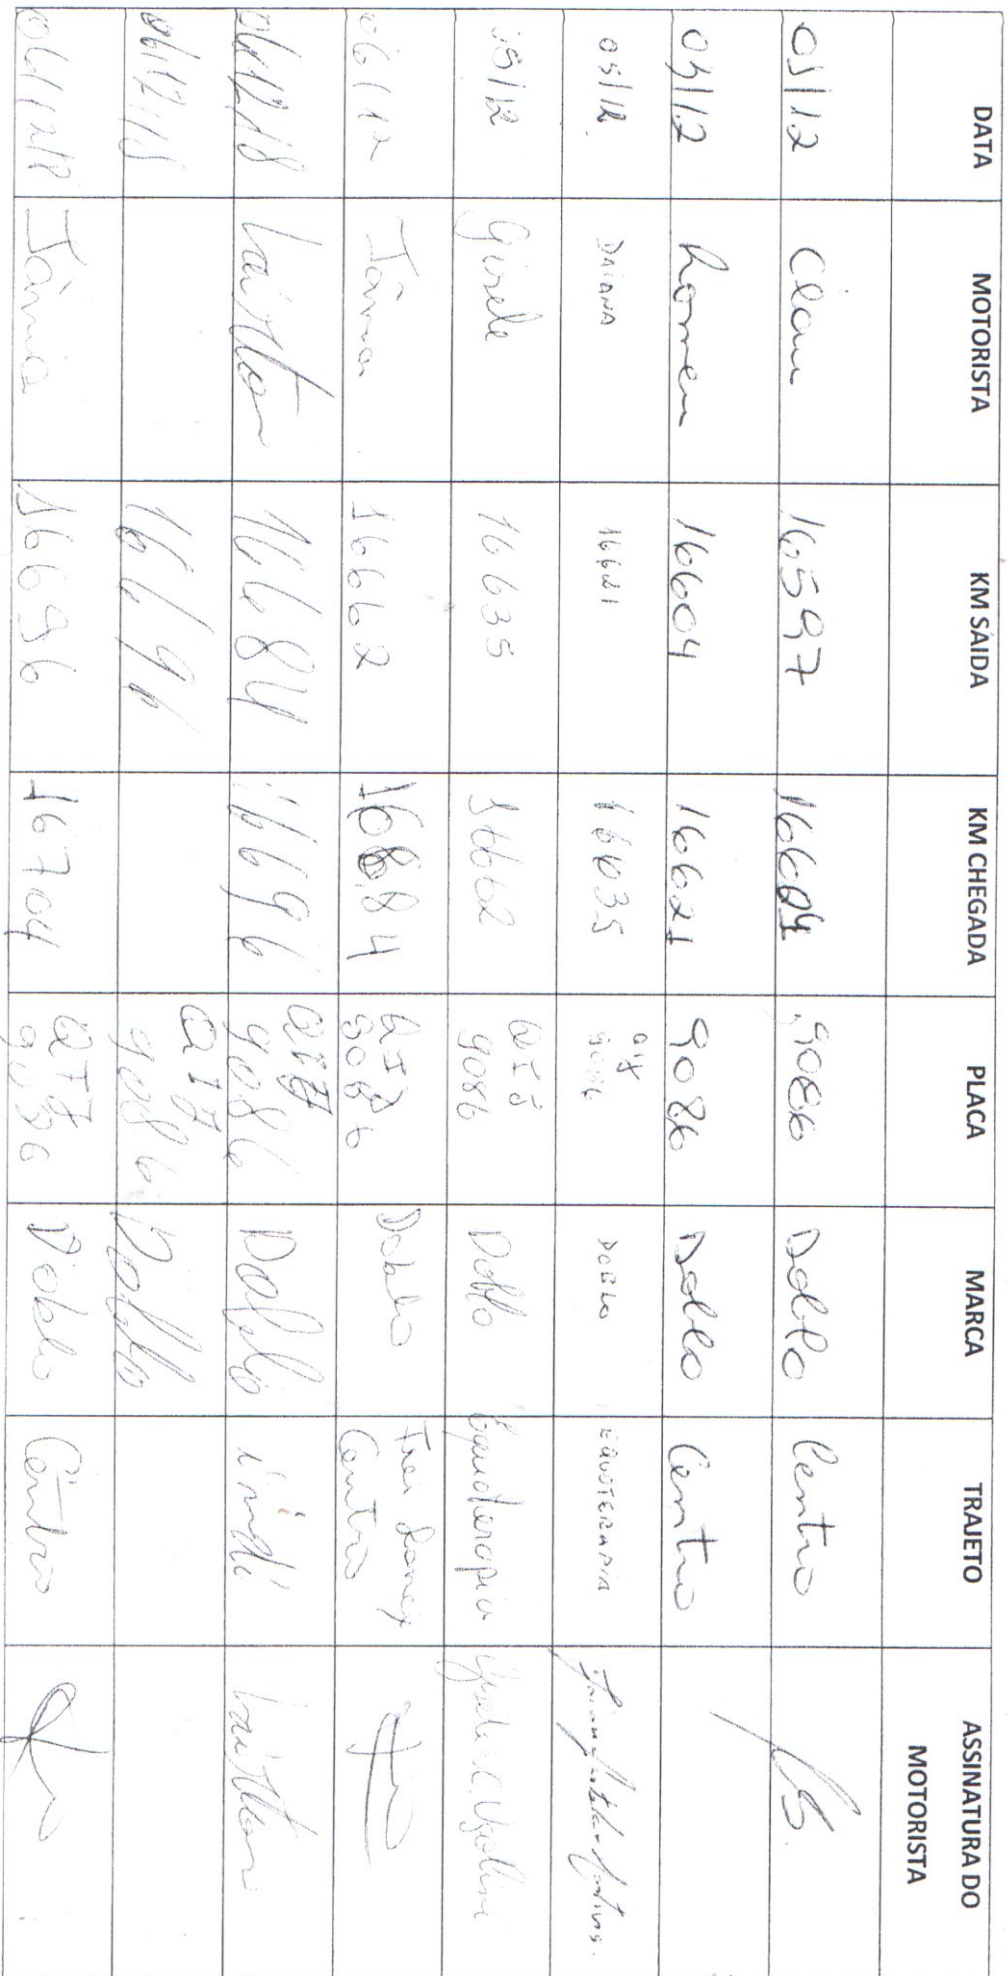 DATA MOTORISTA KM SAIDA KM CHEGADA PLACA MARCA TRAJETO ASSINATURA DO MOTORISTA
05/12 Clau 16597 16604 9086 Doblo Centro
05/12 Romeu 16604 16621 9086 Doblo Centro
05/12 DAIANA 16621 16635 9086 DOBLO EQUOTERAPIA
05/12 Gisele 16635 16662 9086 Doblo Equoterapia
06/12 Tânia 16662 16684 9086 Doblo Centro
06/12/18 Lairton 16684 16696 9086 Doblo Lairton
06/12/18 16696 QIJ 9086 Doblo
06/12/18 Tânia 16696 16704 QIJ 9086 Doblo Centro